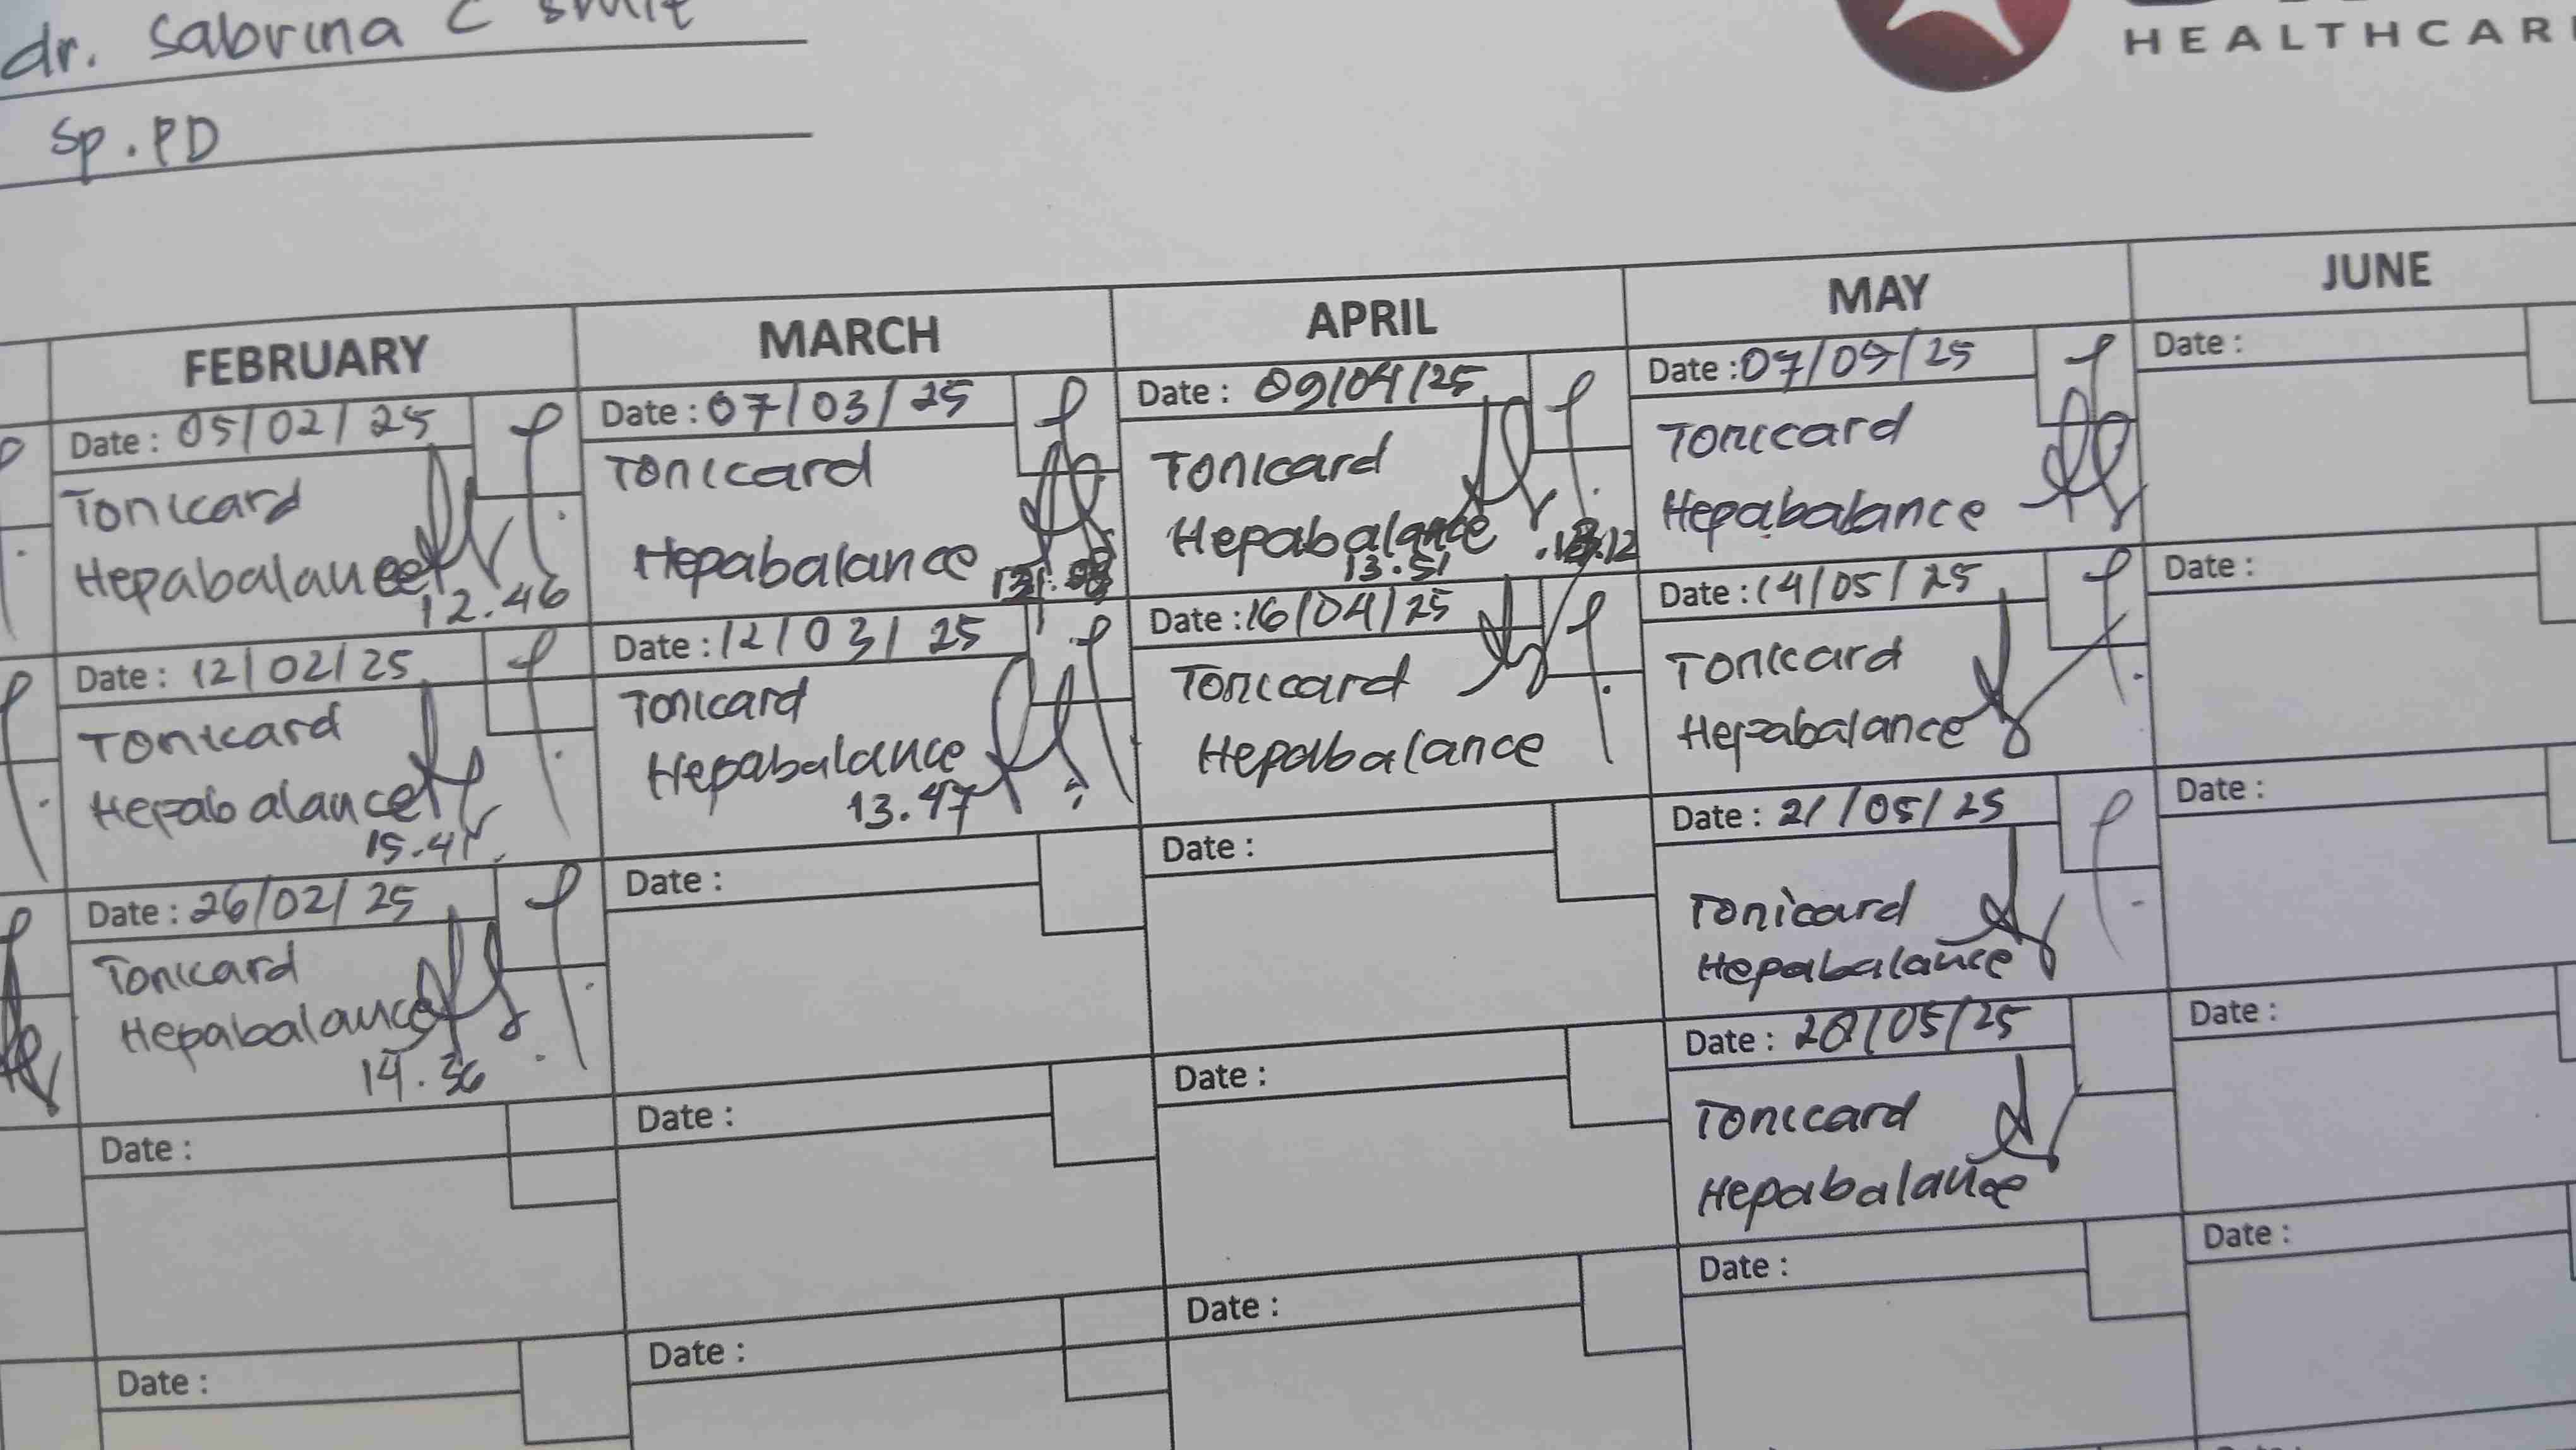 dr. Sabrina C Smit
Sp.PD
HEALTHCAR
FEBRUARY
Date : 05/02/25
Tonicard
Hepabalance
12.46
Date : 12/02/25
Tonicard
Hepabalance
15.41
Date : 26/02/25
Tonicard
Hepabalance
14.36
Date :
Date :
MARCH
Date : 07/03/25
Tonicard
Hepabalance
Date : 12/03/25
Tonicard
Hepabalance
13.47
Date :
Date :
Date :
APRIL
Date : 09/04/25
Tonicard
Hepabalance
13.51
Date : 16/04/25
Tonicard
Hepabalance
Date :
Date :
Date :
MAY
Date : 07/05/25
Tonicard
Hepabalance
Date : 14/05/25
Tonicard
Hepabalance
Date : 21/05/25
Tonicard
Hepabalance
Date : 28/05/25
Tonicard
Hepabalance
Date :
JUNE
Date :
Date :
Date :
Date :
Date :